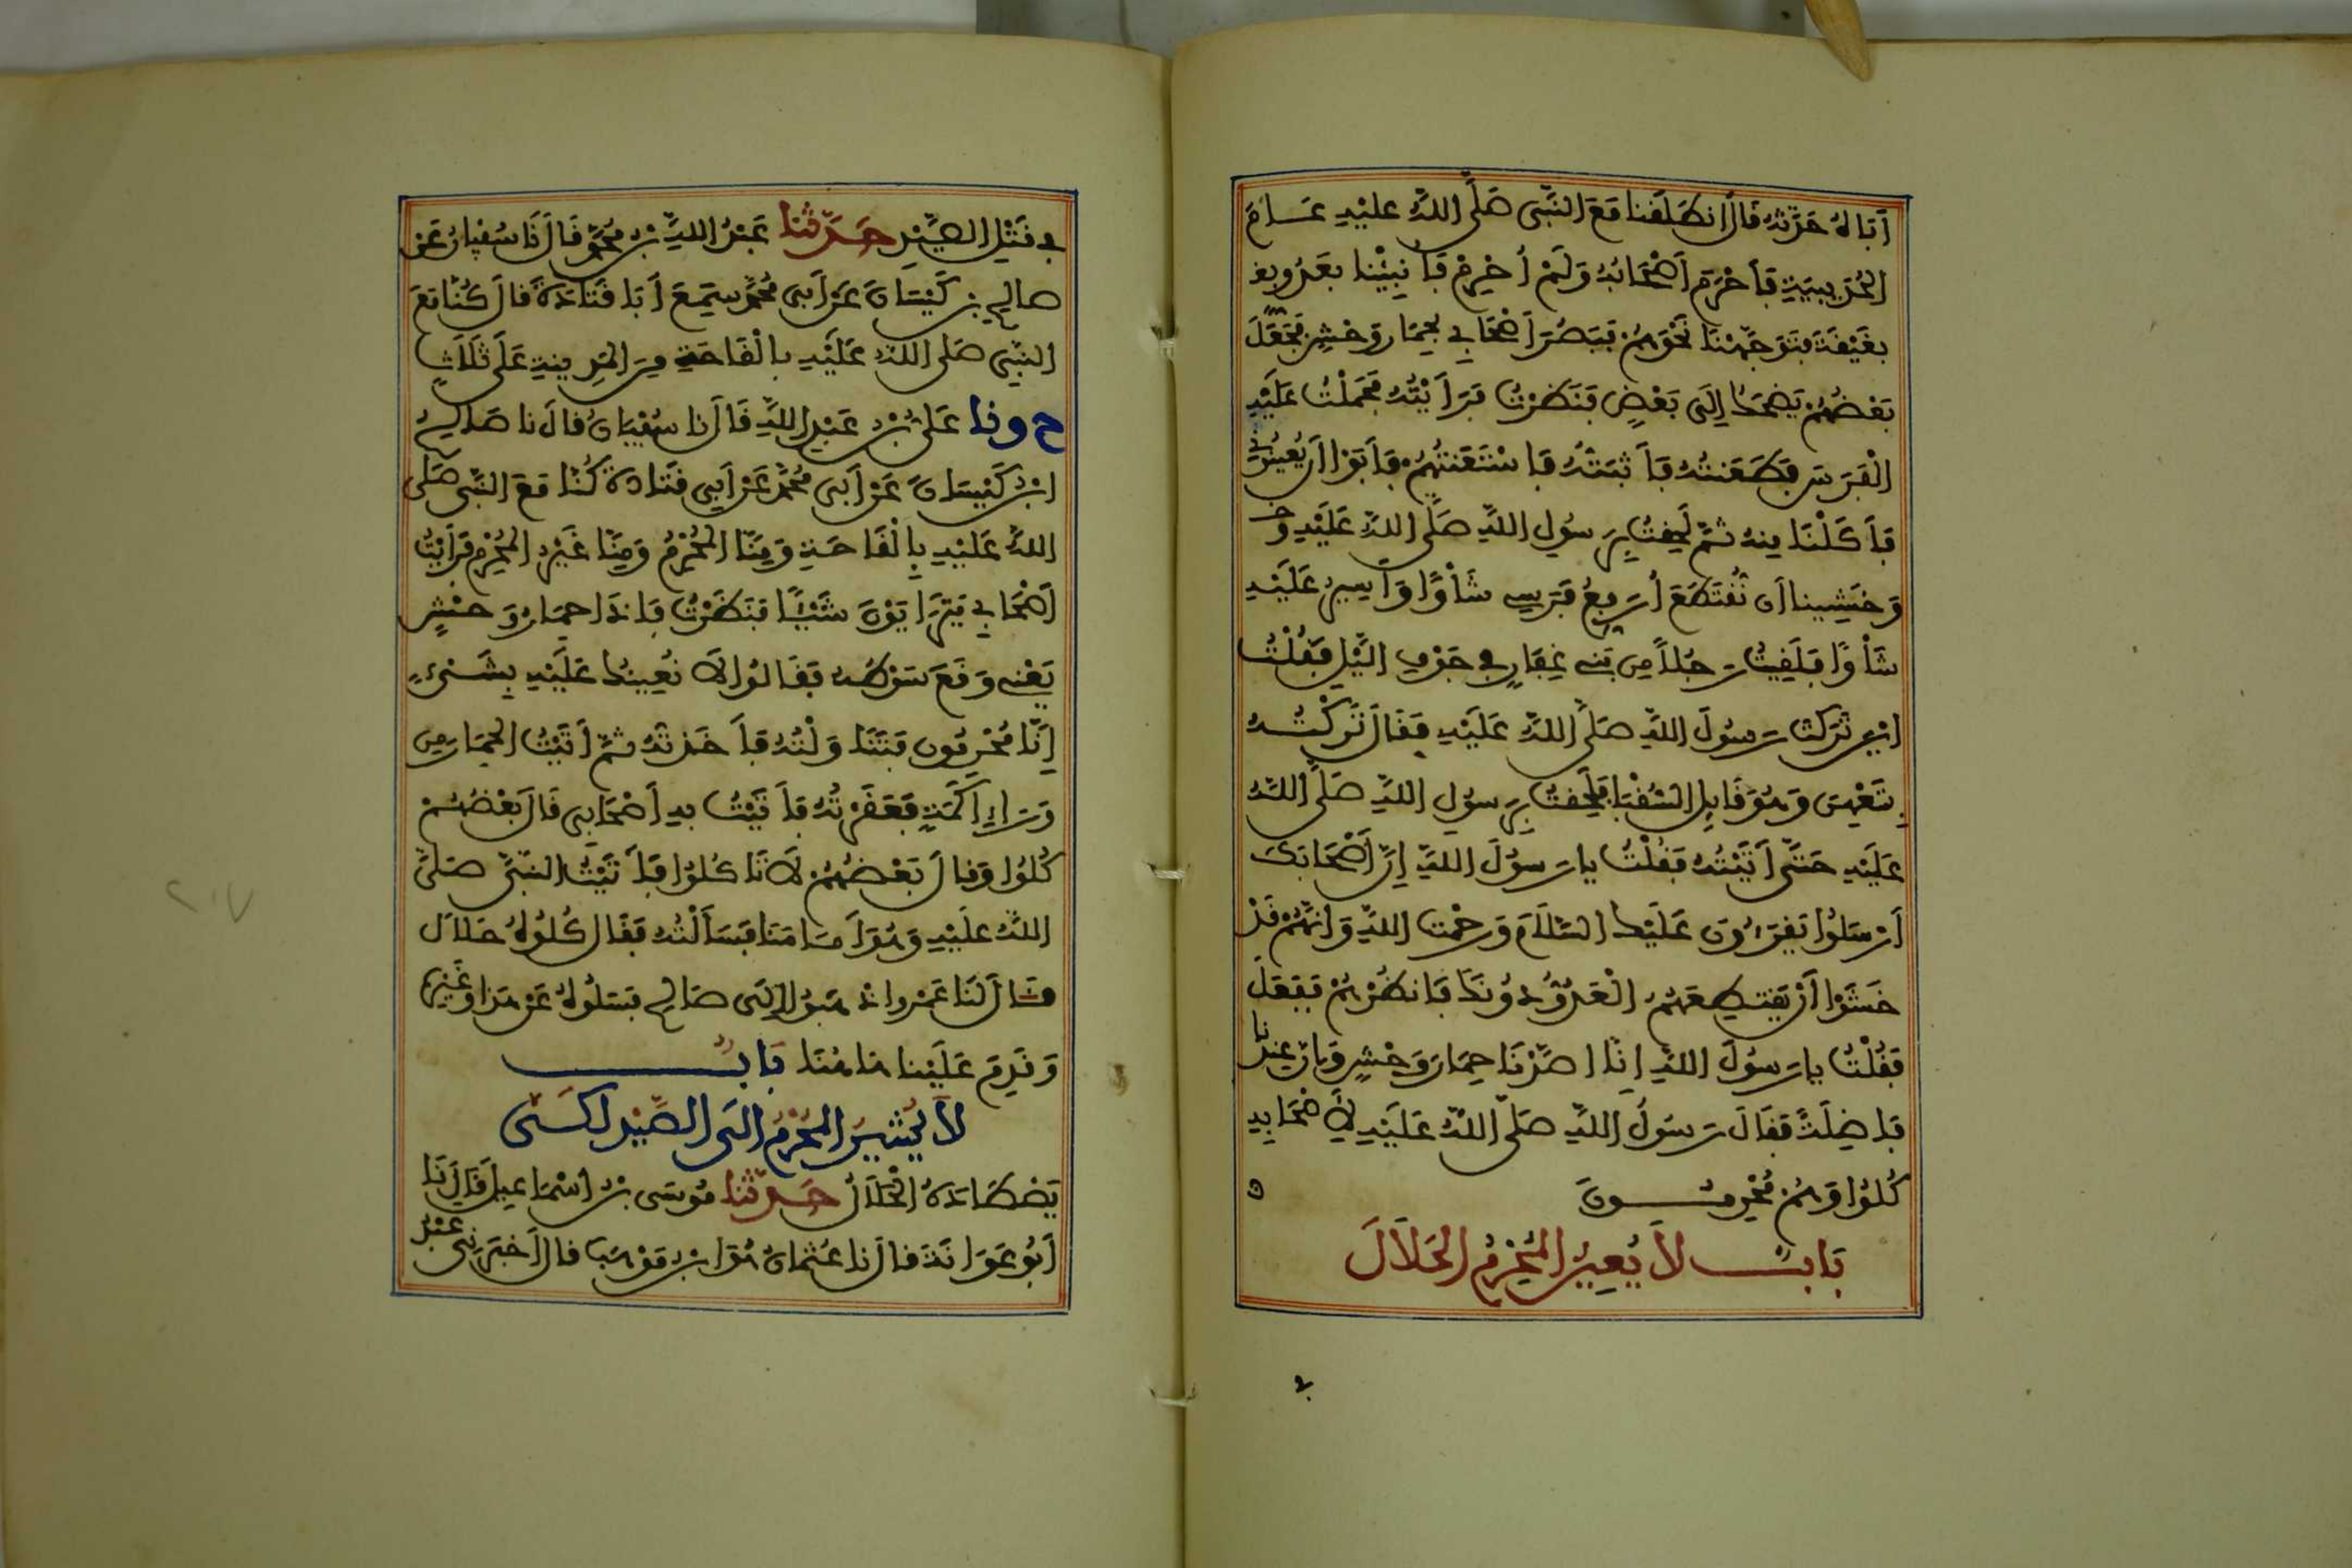 أَبَاهُ حَدَّثَهُ قَالَ انطَلَقْنَا مَعَ النَّبِيِّ صَلَّى اللَّهُ عَلَيْهِ عَامَ
الْحُدَيْبِيَةِ فَأَحْرَمَ أَصْحَابُهُ وَلَمْ أُحْرِمْ فَأُنبِئْنَا بِعَدُوٍّ
بِغَيْقَةَ فَتَوَجَّهْنَا نَحْوَهُمْ فَبَصُرَ أَصْحَابِي بِحِمَارِ وَحْشٍ فَجَعَلَ
بَعْضُهُمْ يَضْحَكُ إِلَى بَعْضٍ فَنَظَرْتُ فَرَأَيْتُهُ فَحَمَلْتُ عَلَيْهِ
الْفَرَسَ فَطَعَنتُهُ فَأَثْبَتُّهُ فَاسْتَعَنتُهُمْ فَأَبَوْا أَن يُعِينُونِي
فَأَكَلْنَا مِنْهُ ثُمَّ لَحِقْتُ بِرَسُولِ اللَّهِ صَلَّى اللَّهُ عَلَيْهِ وَخَ
وَخَشِينَا أَن نُقْتَطَعَ أَرْفَعُ فَرَسِي شَأْوًا وَأَسِيرُ عَلَيْهِ
شَأْوًا فَلَقِيتُ رَجُلًا مِن بَنِي غِفَارٍ فِي جَوْفِ الَّيْلِ فَقُلْتُ
أَيْنَ تَرَكْتَ رَسُولَ اللَّهِ صَلَّى اللَّهُ عَلَيْهِ فَقَالَ تَرَكْتُهُ
بِتَعْهِنَ وَهُوَ قَايِلٌ السُّقْيَا فَلَحِقْتُ بِرَسُولِ اللَّهِ صَلَّى اللَّهُ
عَلَيْهِ حَتَّى أَتَيْتُهُ فَقُلْتُ يَا رَسُولَ اللَّهِ إِنَّ أَصْحَابَكَ
أَرْسَلُوا يَقْرَءُونَ عَلَيْكَ السَّلَامَ وَرَحْمَتَ اللَّهِ وَإِنَّهُمْ قَدْ
خَشَوْا أَنْ يَقْتَطِعَهُمُ الْعَدُوُّ دُونَكَ فَانظُرْهُمْ فَفَعَلَ
فَقُلْتُ يَا رَسُولَ اللَّهِ إِنَّا اصَّدْنَا حِمَارَ وَحْشٍ وَإِنَّ عِندَنَا
فَاضِلَةً فَقَالَ رَسُولُ اللَّهِ صَلَّى اللَّهُ عَلَيْهِ لِأَصْحَابِهِ
كُلُوا وَهُمْ مُحْرِمُونَ
بَابٌ لَا يُعِينُ الْمُحْرِمُ الْحَلَالَ
فِي
فِي قَتْلِ الصَّيْدِ حَدَّثَنَا عَبْدُ اللَّهِ بْنُ مُحَمَّدٍ قَالَ نَا سُفْيَانُ عَنْ
صَالِحِ بْنِ كَيْسَانَ عَنْ أَبِي مُحَمَّدٍ سَمِعَ أَبَا قَتَادَةَ قَالَ كُنَّا مَعَ
النَّبِيِّ صَلَّى اللَّهُ عَلَيْهِ بِالْقَاحَةِ مِنَ الْمَدِينَةِ عَلَى ثَلَاثٍ
ح وَنَا عَلِيُّ بْنُ عَبْدِ اللَّهِ قَالَ نَا سُفْيَانُ قَالَ نَا صَالِحُ
ابْنُ كَيْسَانَ عَنْ أَبِي مُحَمَّدٍ عَنْ أَبِي قَتَادَةَ كُنَّا مَعَ النَّبِيِّ صَلَّى
اللَّهُ عَلَيْهِ بِالْقَاحَةِ وَمِنَّا الْمُحْرِمُ وَمِنَّا غَيْرُ الْمُحْرِمِ فَرَأَيْتُ
أَصْحَابِي يَتَرَاءَوْنَ شَيْئًا فَنَظَرْتُ فَإِذَا حِمَارُ وَحْشٍ
يَعْنِي وَقَعَ سَوْطُهُ فَقَالُوا لَا نُعِينُكَ عَلَيْهِ بِشَيْءٍ
إِنَّا مُحْرِمُونَ فَتَنَاوَلْتُهُ فَأَخَذْتُهُ ثُمَّ أَتَيْتُ الْحِمَارَ مِن
وَرَاءِ أَكَمَةٍ فَعَقَرْتُهُ فَأَتَيْتُ بِهِ أَصْحَابِي قَالَ بَعْضُهُمْ
كُلُوا وَقَالَ بَعْضُهُمْ لَا تَاكُلُوا فَأَتَيْتُ النَّبِيَّ صَلَّى
اللَّهُ عَلَيْهِ وَهُوَ أَمَامَنَا فَسَأَلْتُهُ فَقَالَ كُلُوهُ حَلَالٌ
قَالَ لَنَا عَمْرٌو اذْهَبُوا إِلَى صَالِحٍ فَسَلُوهُ عَنْ هَذَا وَغَيْرِهِ
وَقَدِمَ عَلَيْنَا هَاهُنَا بَابٌ
لَا يُشِيرُ الْمُحْرِمُ إِلَى الصَّيْدِ لِكَيْ
يَصْطَادَهُ الْحَلَالُ حَدَّثَنَا مُوسَى بْنُ إِسْمَاعِيلَ قَالَ نَا
أَبُو عَوَانَةَ قَالَ نَا عُثْمَانُ هُوَ ابْنُ مَوْهَبٍ قَالَ أَخْبَرَنِي عَبْدُ
٢١٧